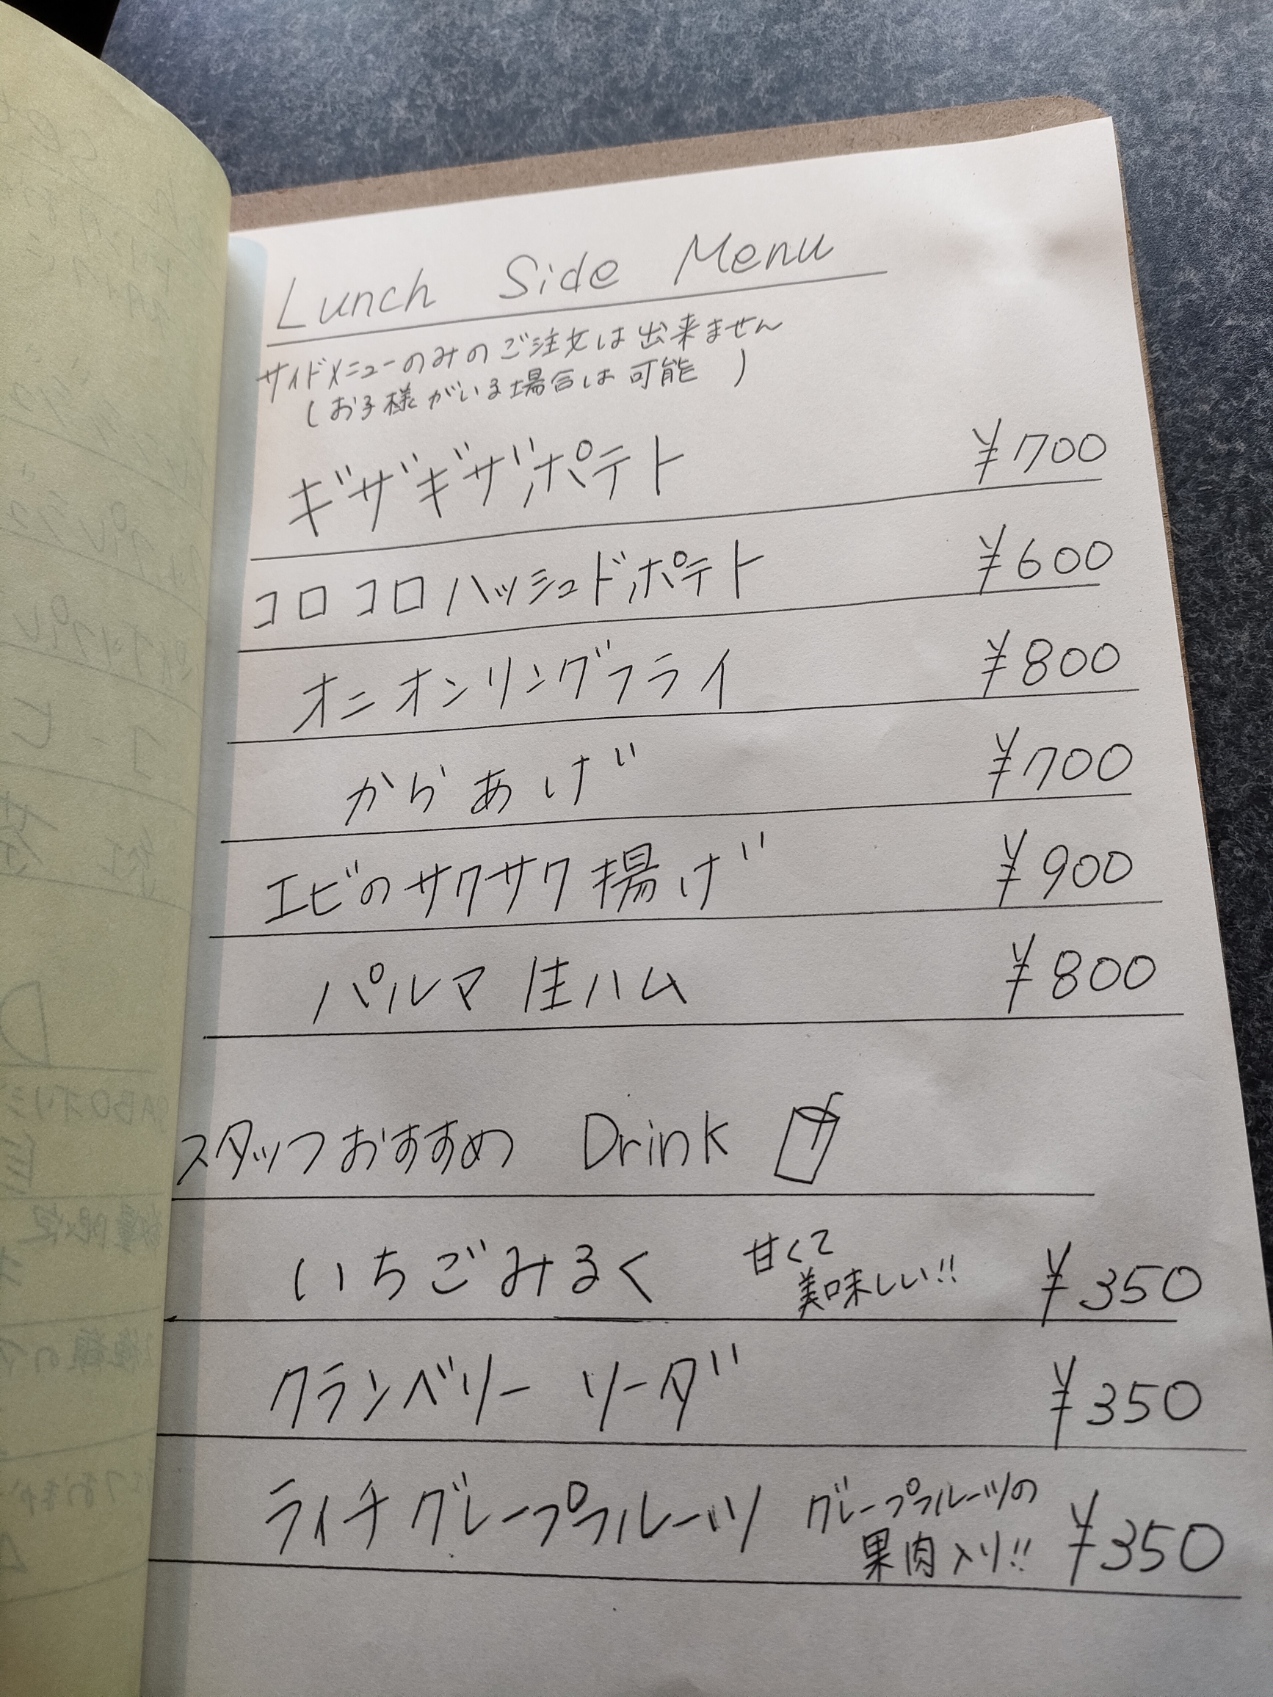 Lunch Side Menu
サイドメニューのみのご注文は出来ません
(お子様がいる場合は可能)
ギザギザポテト ¥700
コロコロハッシュドポテト ¥600
オニオンリングフライ ¥800
からあげ ¥700
エビのサクサク揚げ ¥900
パルマ生ハム ¥800
スタッフおすすめ Drink
いちごみるく 甘くて美味しい!! ¥350
クランベリーソーダ ¥350
ライチグレープフルーツ グレープフルーツの果肉入り!! ¥350